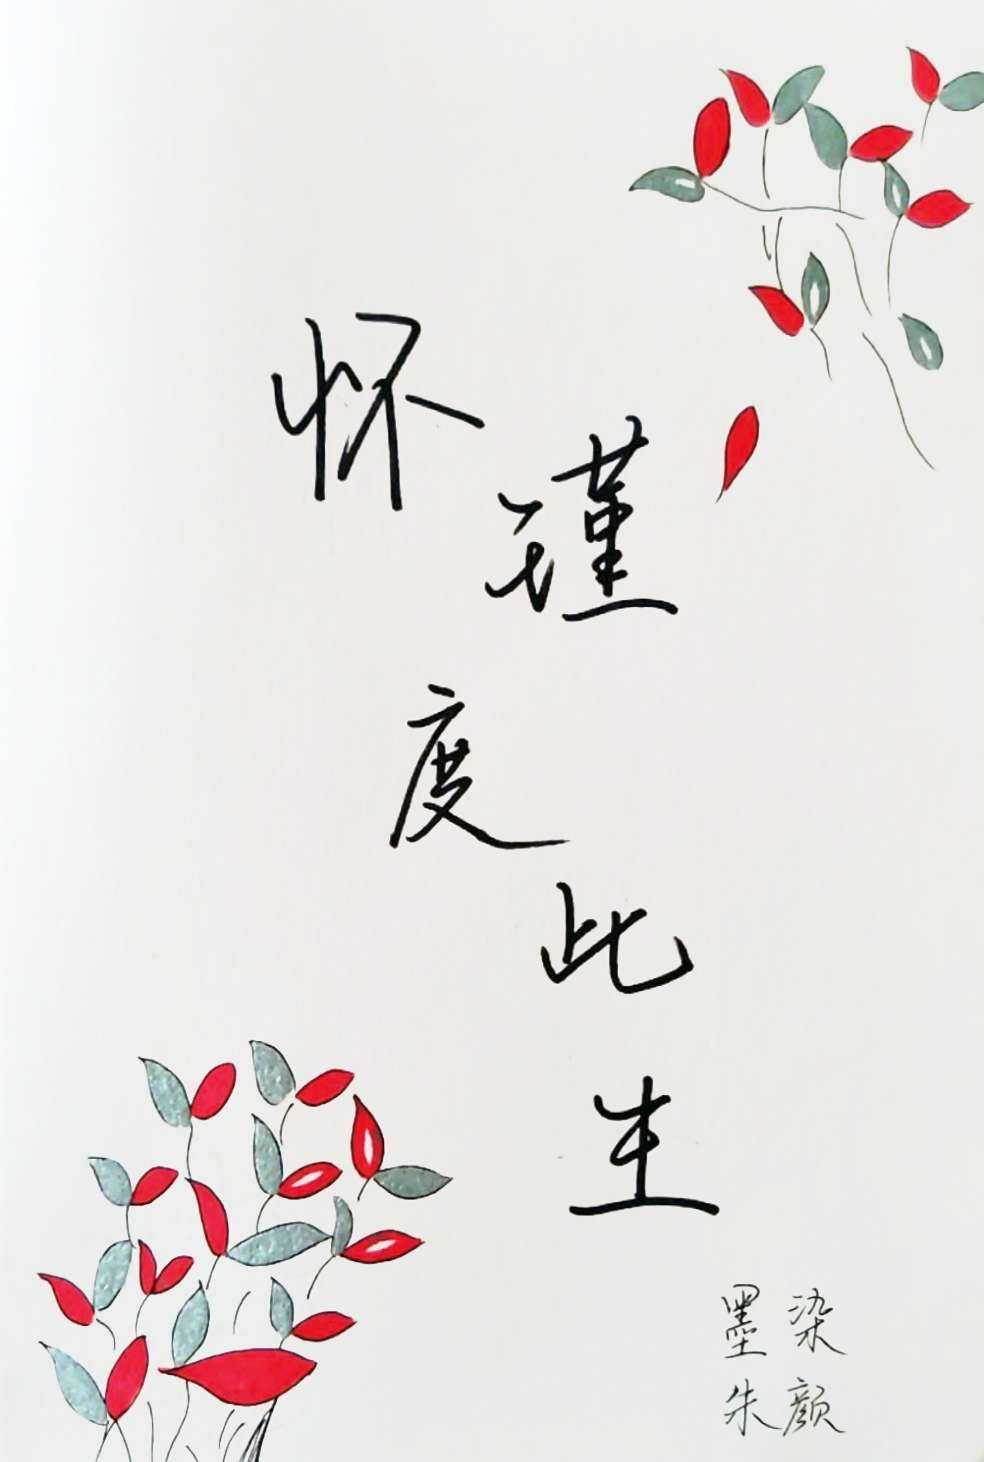 怀瑾
度此生
墨染
朱颜